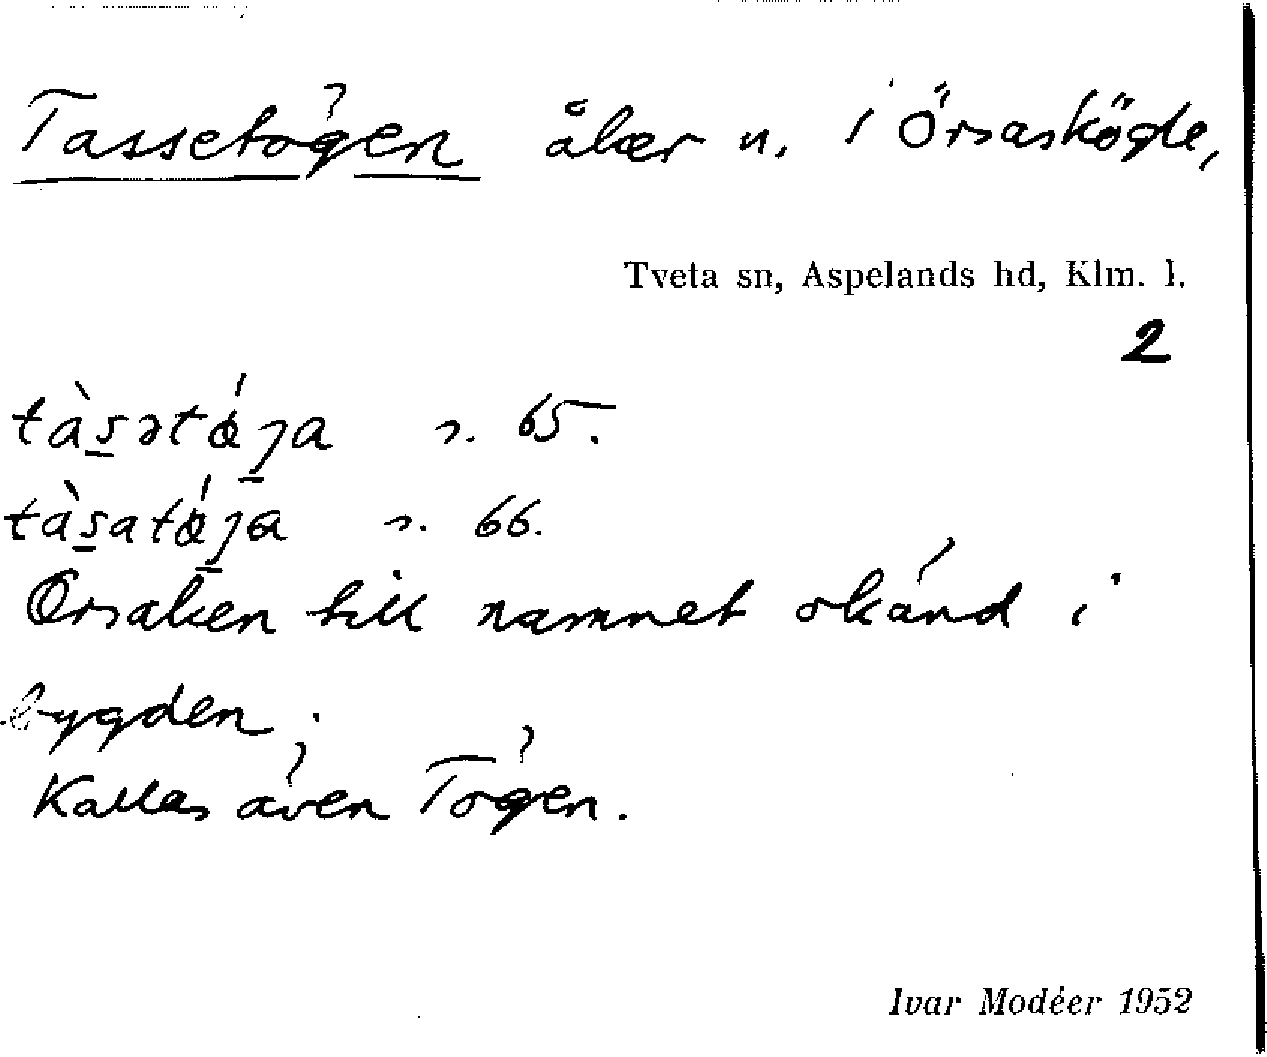 Tassetögen åker n. i Örsaskögle,
Tveta sn, Aspelands hd, Klm. l.
2
s. 65.
s. 66.
Orsaken till namnet okänd i
bygden.
Kallas även Tögen.
Ivar Modéer 1952